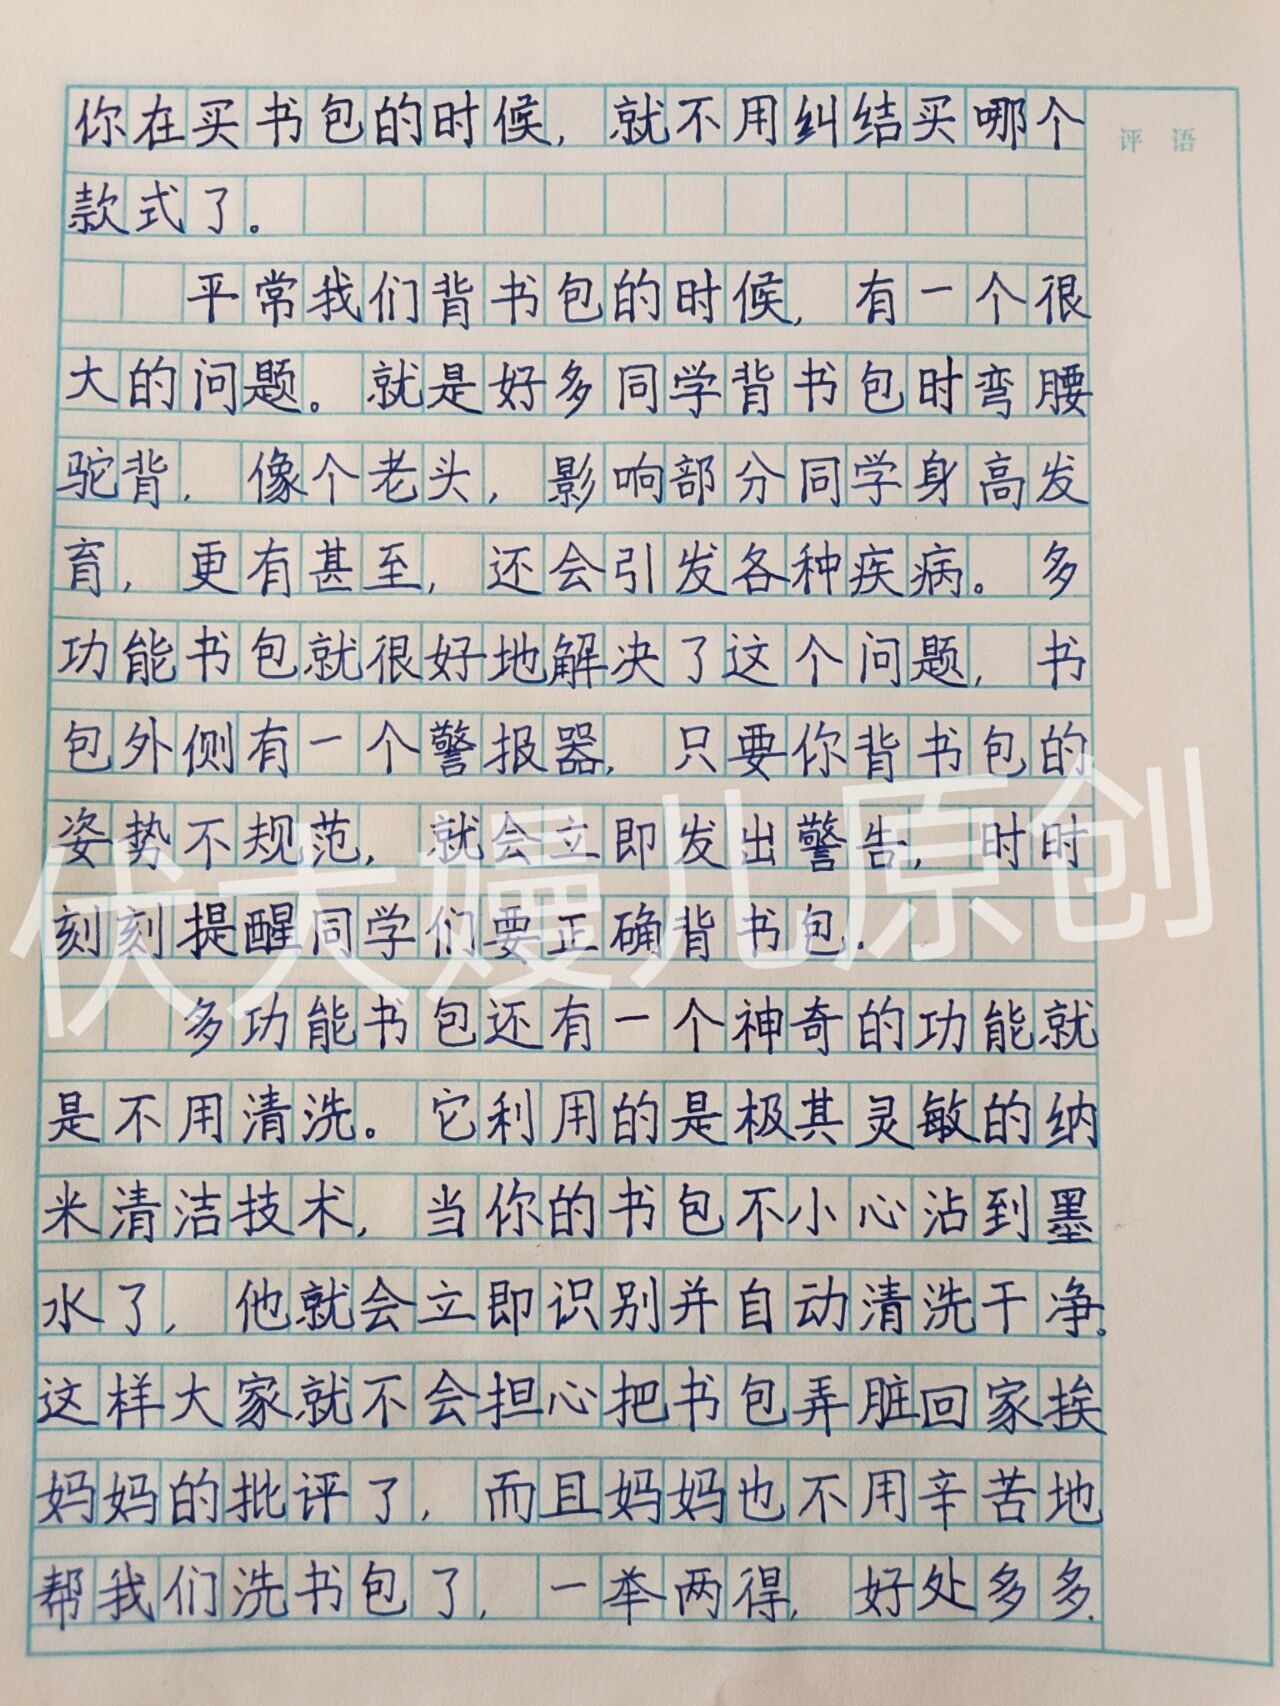 你在买书包的时候，就不用纠结买哪个
评语
款式了。
平常我们背书包的时候，有一个很
大的问题。就是好多同学背书包时弯腰
驼背，像个老头，影响部分同学身高发
育，更有甚至，还会引发各种疾病。多
功能书包就很好地解决了这个问题，书
包外侧有一个警报器，只要你背书包的
姿势不规范，就会立即发出警告，时时
刻刻提醒同学们要正确背书包.
伏大嫚儿原创
多功能书包还有一个神奇的功能就
是不用清洗。它利用的是极其灵敏的纳
米清洁技术，当你的书包不小心沾到墨
水了，他就会立即识别并自动清洗干净。
这样大家就不会担心把书包弄脏回家挨
妈妈的批评了，而且妈妈也不用辛苦地
帮我们洗书包了，一举两得，好处多多.